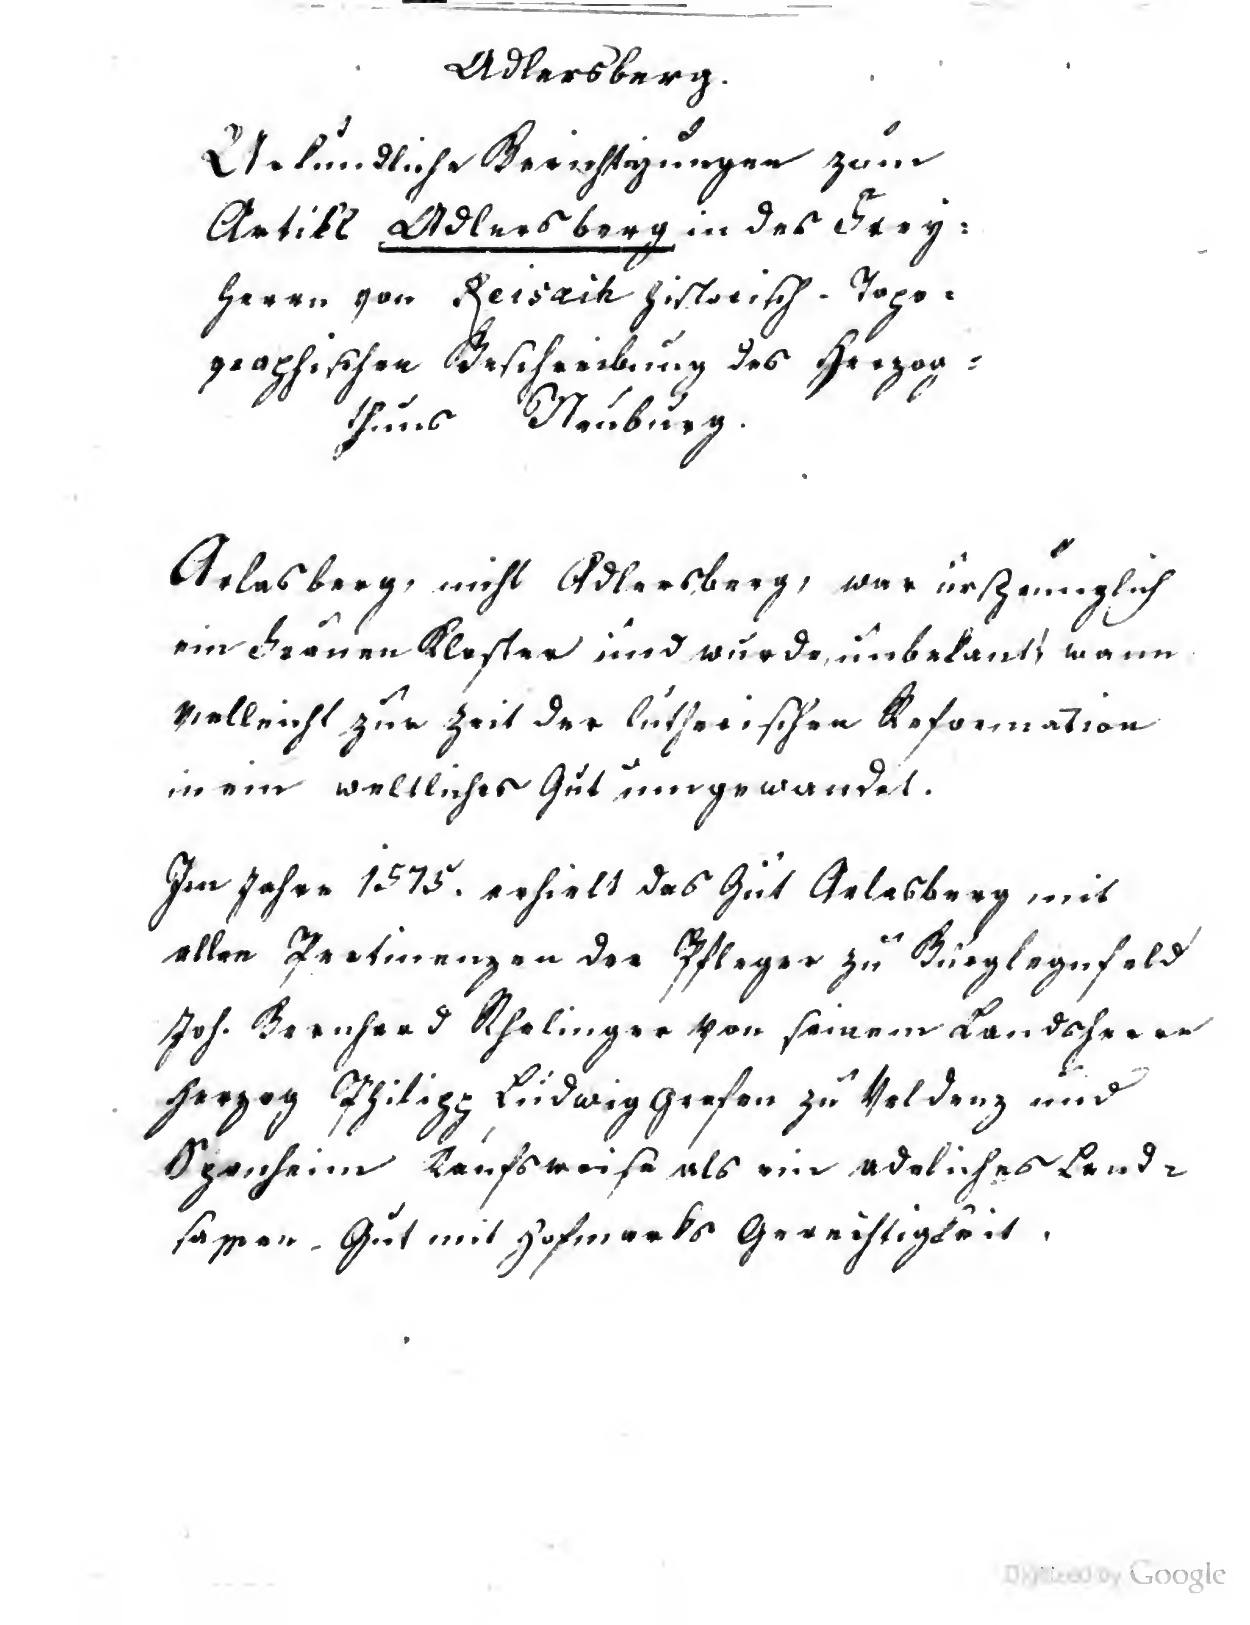 Adlersberg.
Urkundliche Berichtigungen zum
Artikl Adlersberg in des Frey=
herrn von Reisach historisch-Topo=
graphischen Beschreibung des Herzog=
thums Neuburg.
Arlasberg, nicht Adlersberg, war ursprünglich
ein Frauen Kloster und wurde, unbekant, wann
vielleicht zur Zeit der lutherischen Reformation
in ein weltliches Gut umgewandet.
Im Jahre 1575. erhielt das Gut Arlasberg mit
allen Pertinenzen der Pfleger zu Burglegnfeld
Joh. Bernhard Rhelinger von seinem Landsherrn
Herzog Philipp Ludwig Grafen zu Veldenz und
Sponheim kaufsweise als ein adeliches Land=
sassen-Gut mit Hofmarks Gerechtigkeit.
Digitized by Google